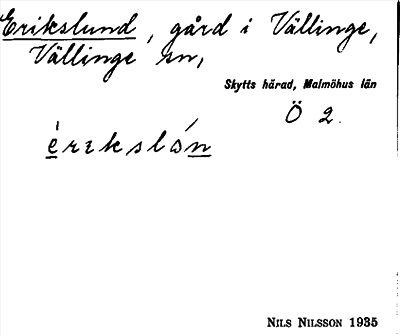 Erikslund, gård i Vällinge,
Vällinge sn,
Skytts härad, Malmöhus län
Ö 2.
érɪkslón
NILS NILSSON 1935